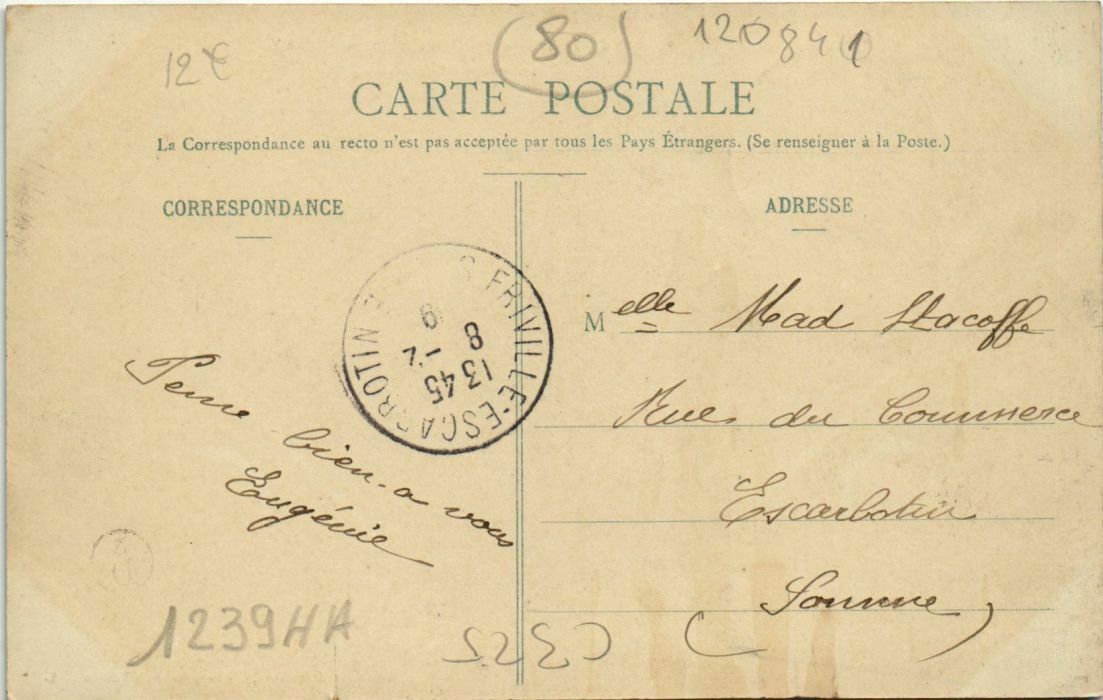 12€
(80)
120841
CARTE POSTALE
La Correspondance au recto n'est pas acceptée par tous les Pays Étrangers. (Se renseigner à la Poste.)
CORRESPONDANCE
ADRESSE
FRIVILLE-ESCARBOTIN
13 45
8
Pense bien a vous
Eugénie
Melle Mad
Rue du Commerce
Escarbotin
(Somme)
1239HA